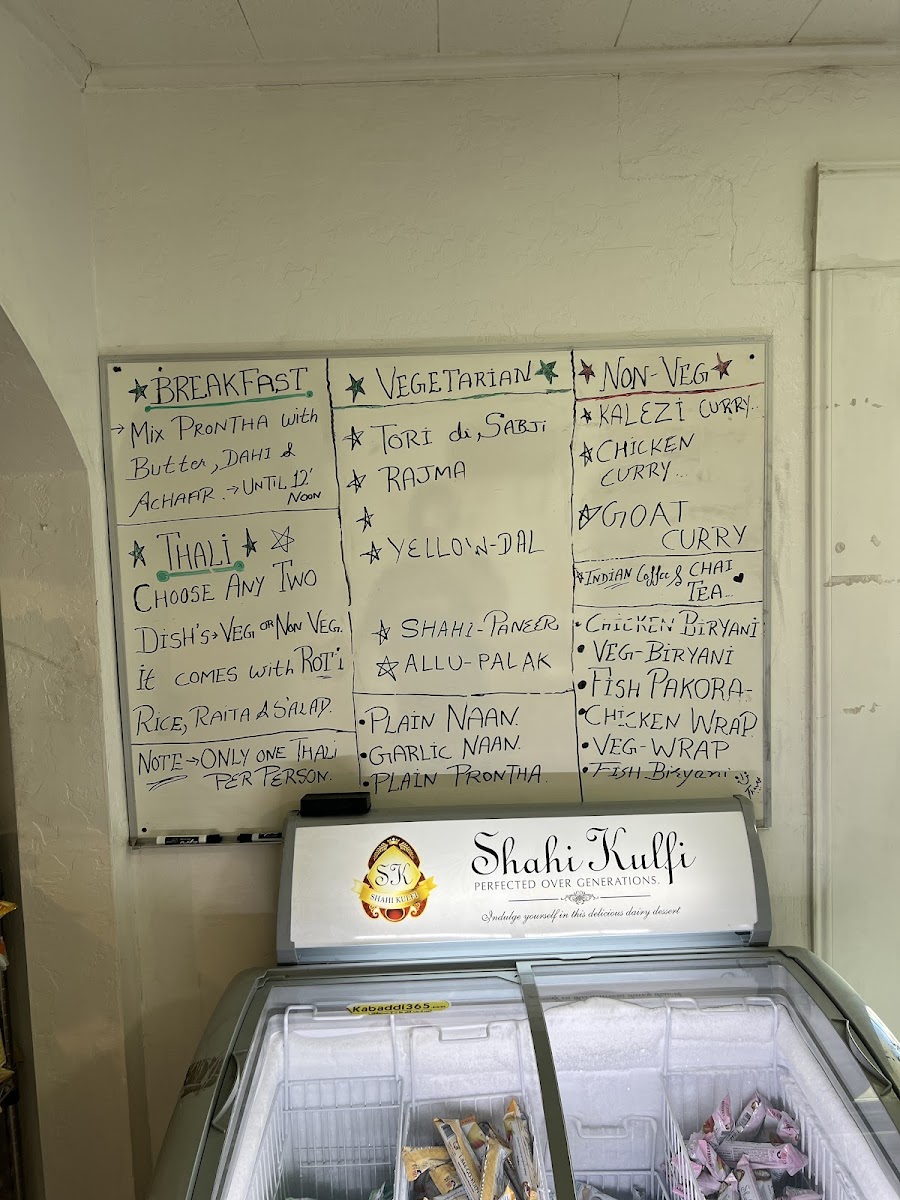 BREAKFAST
→ Mix PRONTHA with
Butter, DAHI &
ACHAAR. → UNTIL 12'
NOON
THALI
CHOOSE ANY TWO
DISH'S → VEG OR NON VEG.
it COMES with ROTi
RICE, RAITA & SALAD.
NOTE → ONLY ONE THALi
PER PERSON.
VEGETARiAN
TORi di, SABJi
RAJMA
YELLOW-DAL
SHAHI-PANEER
ALLU-PALAK
• PLAIN NAAN.
• GARLIC NAAN.
• PLAIN PRONTHA.
NON-VEG
KALEZI CURRY..
CHICKEN
CURRY...
GOAT
CURRY
INDIAN Coffee & CHAI
TEA...
• CHICKEN BIRYANI
• VEG-BIRYANI
• FISH PAKORA-
• CHICKEN WRAP
• VEG-WRAP
• FISH Biryani
SK
SHAHI KULFI
Shahi Kulfi
PERFECTED OVER GENERATIONS.
Indulge yourself in this delicious dairy dessert
Kabaddi365.com